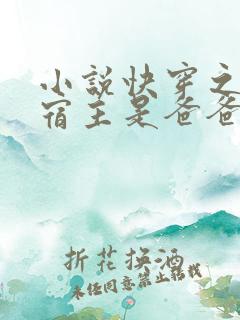 小说快穿之
宿主是爸爸
折花换酒
未经同意禁止转载